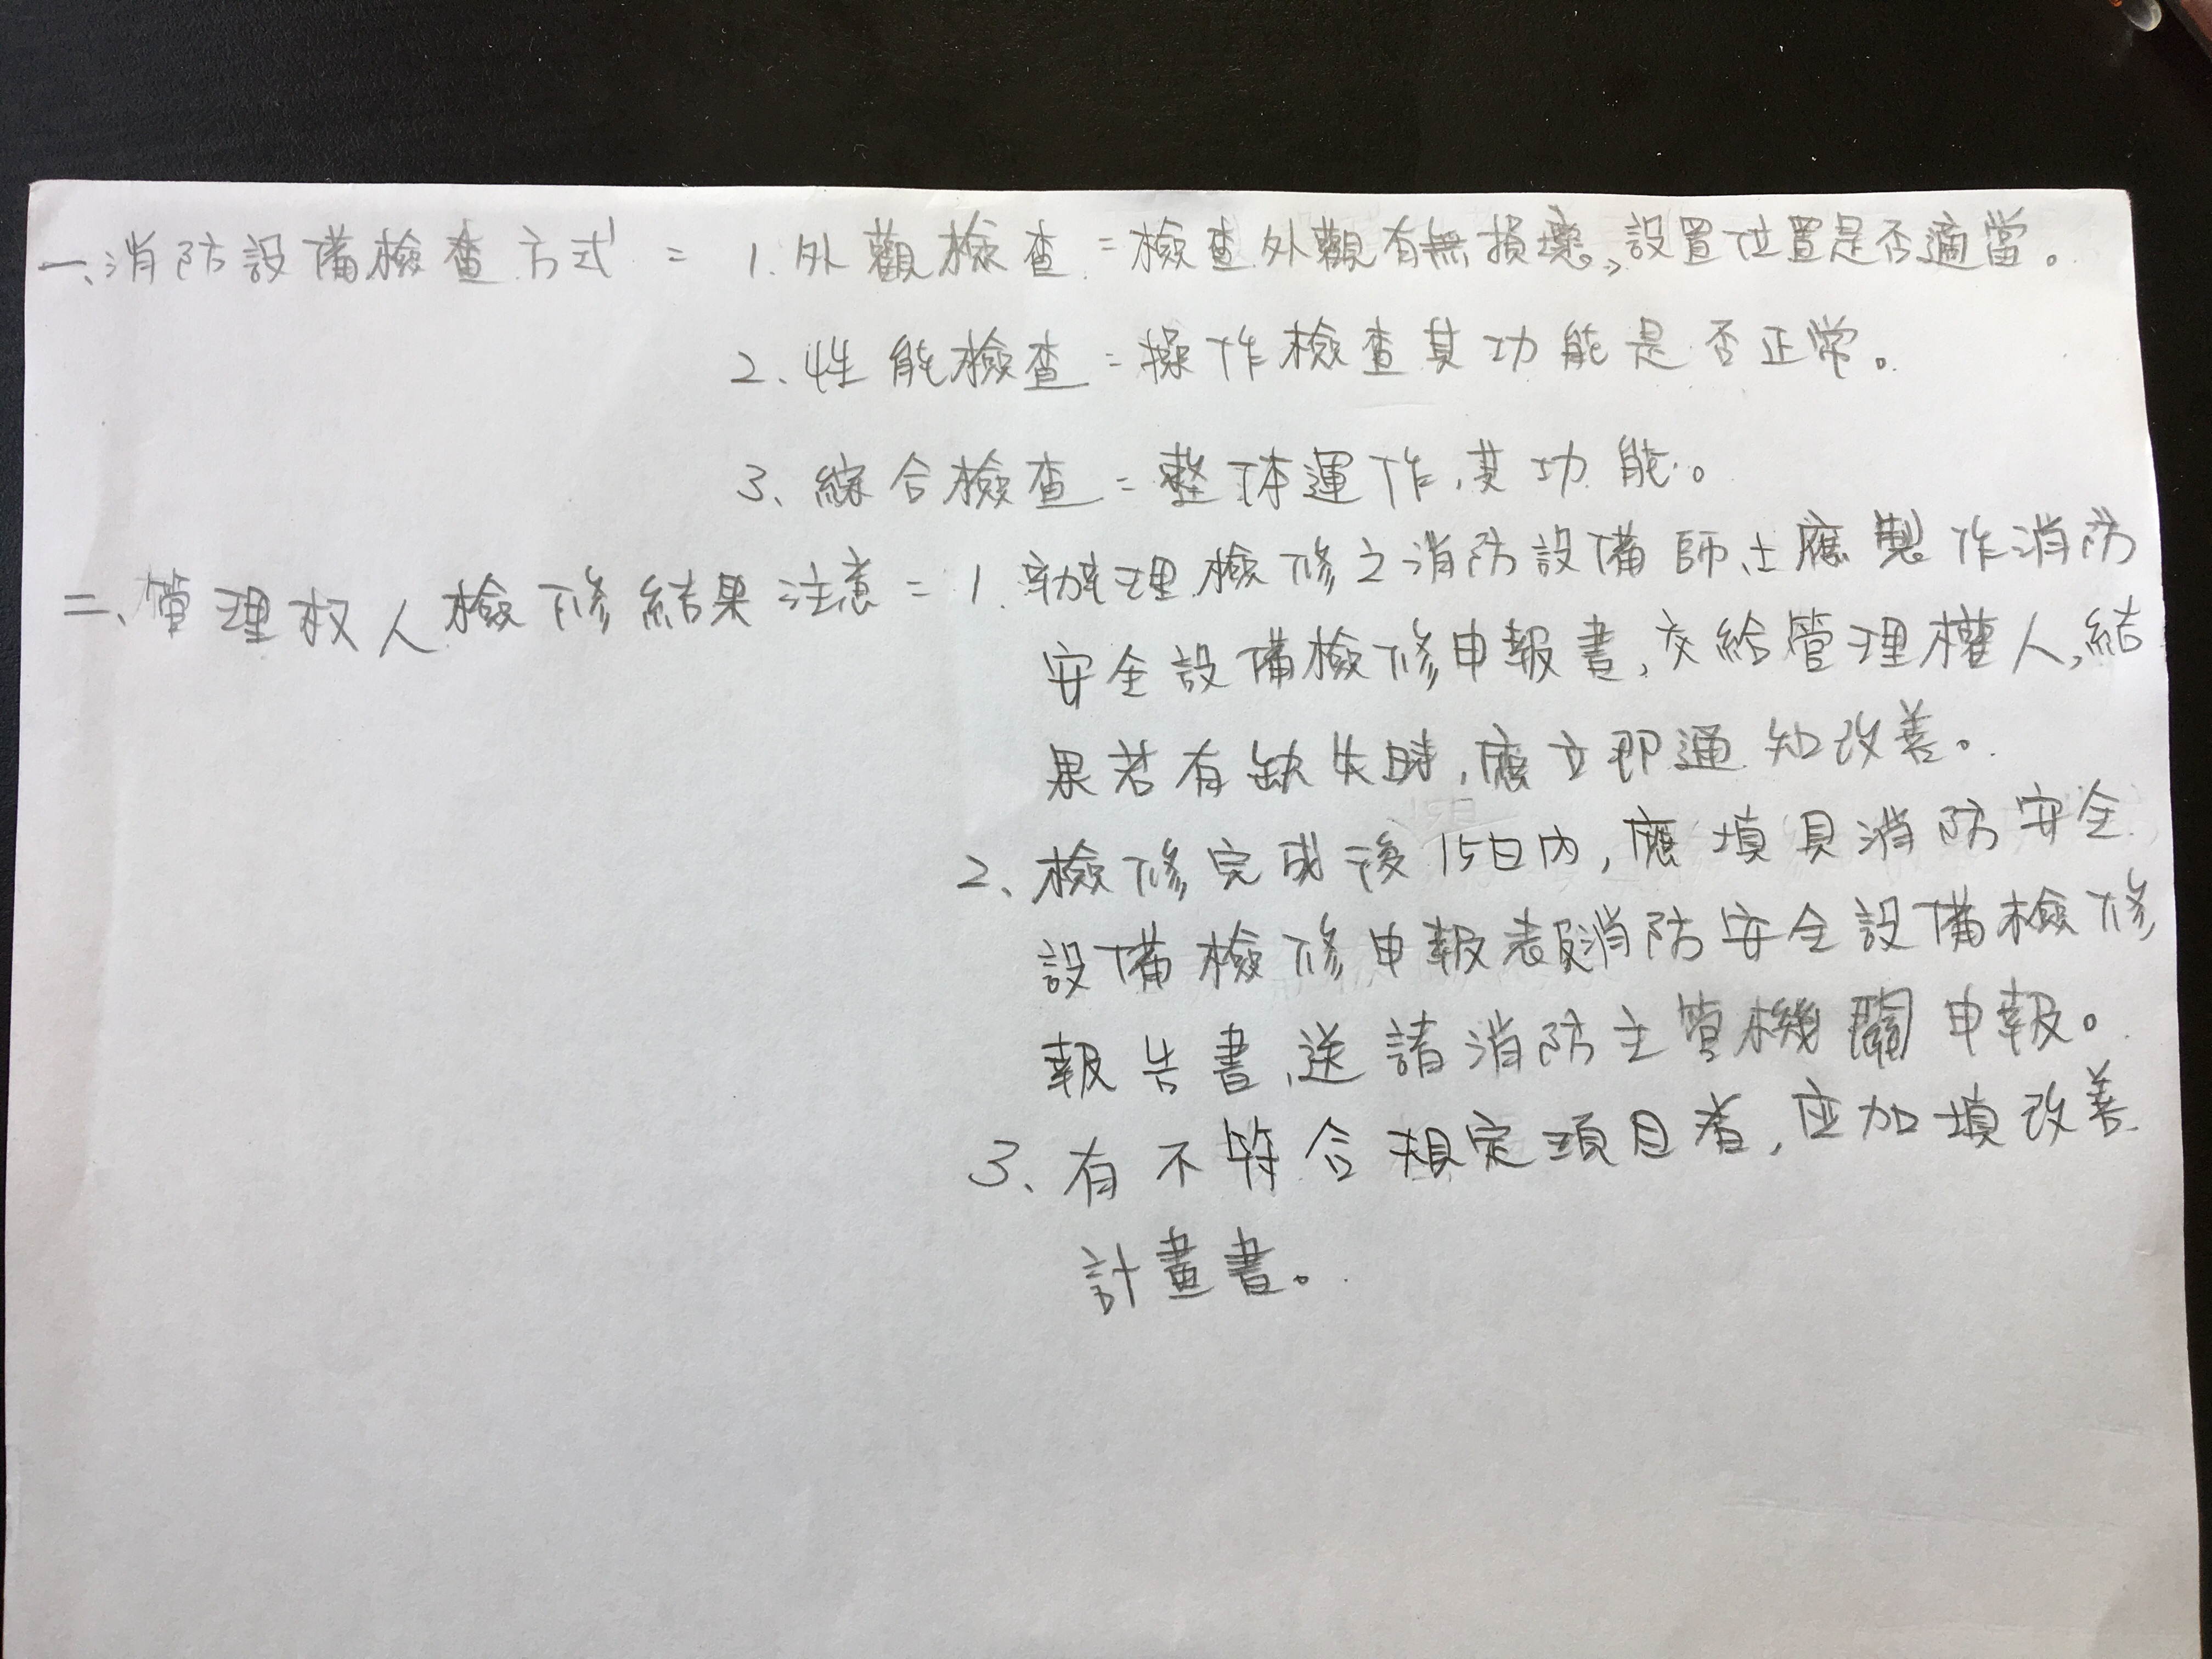 一、消防設備檢查方式 = 1. 外觀檢查 = 檢查外觀有無損壞、設置位置是否適當。
2、性能檢查 = 操作檢查其功能是否正常。
3、綜合檢查 = 整体運作,其功能。
二、管理权人檢修結果注意 = 1. 辦理檢修之消防設備師、士應製作消防
安全設備檢修申報書,交給管理權人,結
果若有缺失時,應立即通知改善。
2、檢修完成後15日內,應填具消防安全
設備檢修申報表及消防安全設備檢修
報告書,送請消防主管機關申報。
3、有不符合規定項目者,应加填改善
計畫書。